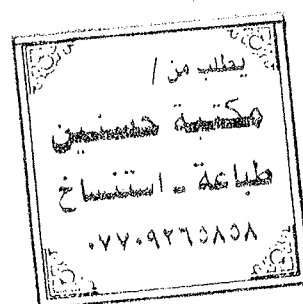 يطلب من /
مكتبة حسنين
طباعة - استنساخ
٠٧٧٠٩٢٦٥٨٥٨